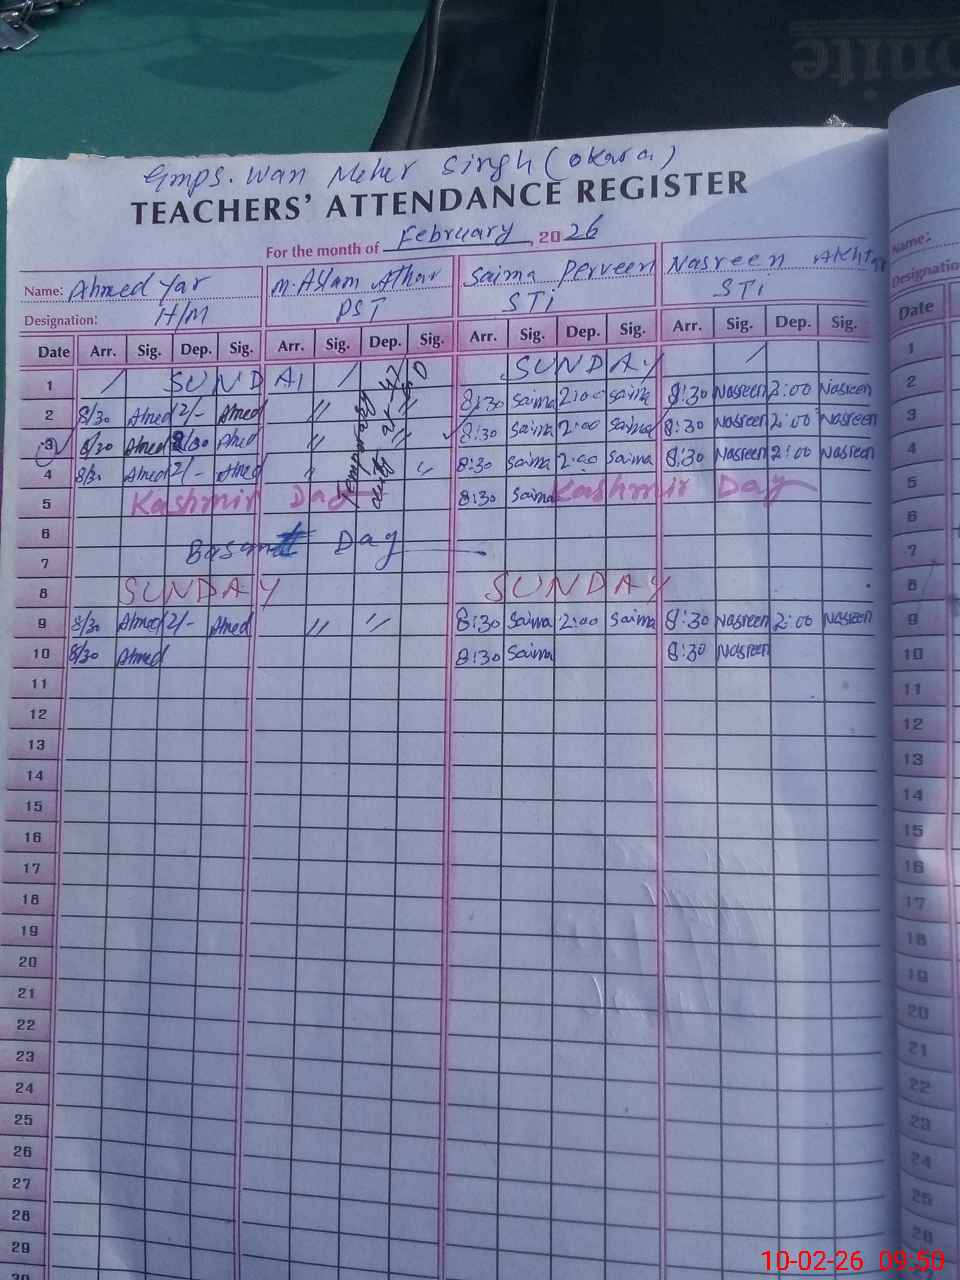 Gmps. Wan Meher Singh (Okara)
TEACHERS' ATTENDANCE REGISTER
For the month of February, 2026
Name: Ahmed Yar M. Aslam Athar Saima Perveen Nasreen Akhtar
Designation: H/M PST STi STi
Date Arr. Sig. Dep. Sig. Arr. Sig. Dep. Sig. Arr. Sig. Dep. Sig. Arr. Sig. Dep. Sig.
1 / SUNDAY / SUNDAY /
2 8/30 Ahmed 2/- Ahmed 〃 〃 8:30 Saima 2:00 Saima 8:30 Nasreen 2:00 Nasreen
3 8/30 Ahmed 2/30 Ahmed 〃 〃 8:30 Saima 2:00 Saima 8:30 Nasreen 2:00 Nasreen
4 8/30 Ahmed 2/- Ahmed 〃 〃 8:30 Saima 2:00 Saima 8:30 Nasreen 2:00 Nasreen
Temporary duty at
5 Kashmir Day 8:30 Saima Kashmir Day
6
7 Basant Day
8 SUNDAY SUNDAY
9 8/30 Ahmed 2/- Ahmed 〃 〃 8:30 Saima 2:00 Saima 8:30 Nasreen 2:00 Nasreen
10 8/30 Ahmed 8:30 Saima 8:30 Nasreen
11
12
13
14
15
16
17
18
19
20
21
22
23
24
25
26
27
28
29
30
Name:
Designatio
Date
1
2
3
4
5
6
7
8
9
10
11
12
13
14
15
16
17
18
19
20
21
22
23
24
25
26
10-02-26 09:50